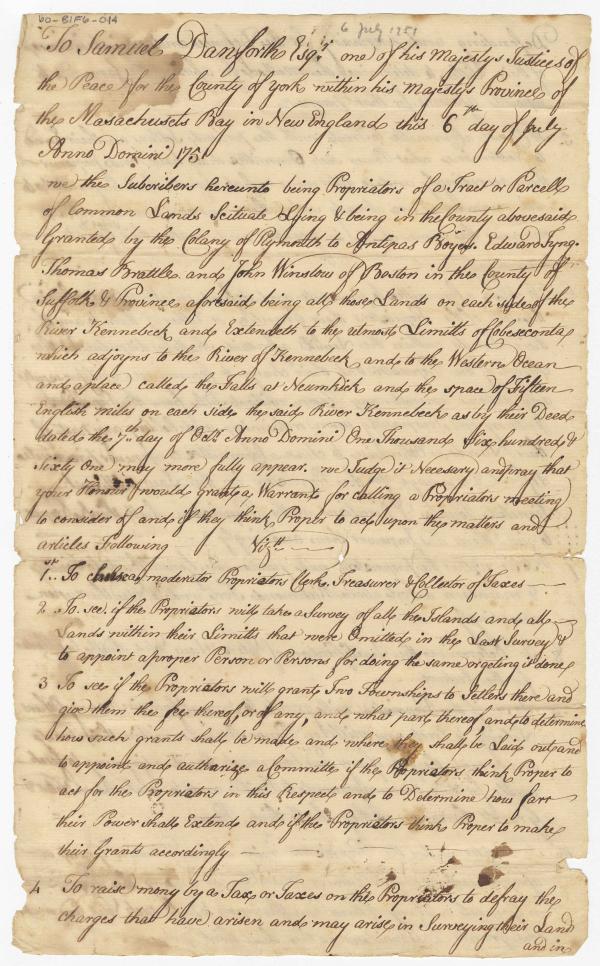 60-81F6-014
6 July 1751
To Samuel Danforth Esqr. one of his Majestys Justices of
the Peace for the County of york within his Majestys Province of
the Masachusets Bay in New England this 6th day of July
Anno Domini 1751
we the Subcribers hereunto being Propriators of a Tract or Parcell
of Common Lands Scituate Lying & being in the County abovesaid
Granted by the Colany of Plymouth to Antipas Boyes. Edward Tyng.
Thomas Brattle and John Winslow of Boston in the County of
Suffolk & Province aforesaid being all those Lands on each side of the
River Kennebeck and Extendeth to the utmost Limitts of Cobeseconta
which adjoyns to the River of Kennebeck and to the Western Ocean
and a place called the Falls at Neumkick and the space of Fifteen
English miles on each side the said River Kennebeck as by their Deed
dated the 7th day of Octr. Anno Domini One Thousand Six hundred &
Sixty One may more fully appear. we Judge it Necessary and pray that
your Honour would grant a Warrant for calling a Propriators meeting
to consider of and if they think Proper to act upon the matters and
articles Following Vizt.
1st. To chuse a moderator Propriators Clerk Treasurer & Collector of Taxes
2 To see if the Propriators will take a Survey of all the Islands and all
Lands within their Limitts that were Omitted in the Last Survey &
to appoint a proper Person or Persons for doing the same or geting it done
3 To see if the Propriators will grant Two Townships to Setlers there and
give them the fee thereof, or of any, and what part thereof, and to determine
how such grants shall be made and where they shall be Laid out and
to appoint and authorize a Committe if the Propriators think Proper to
act for the Propriators in this Respect and to Determine how farr
their Power shall Extend and if the Propriators think Proper to make
their Grants accordingly
4 To raise mony by a Tax or Taxes on the Propriators to defray the
charges that have arisen and may arise in Surveying their Land
and in